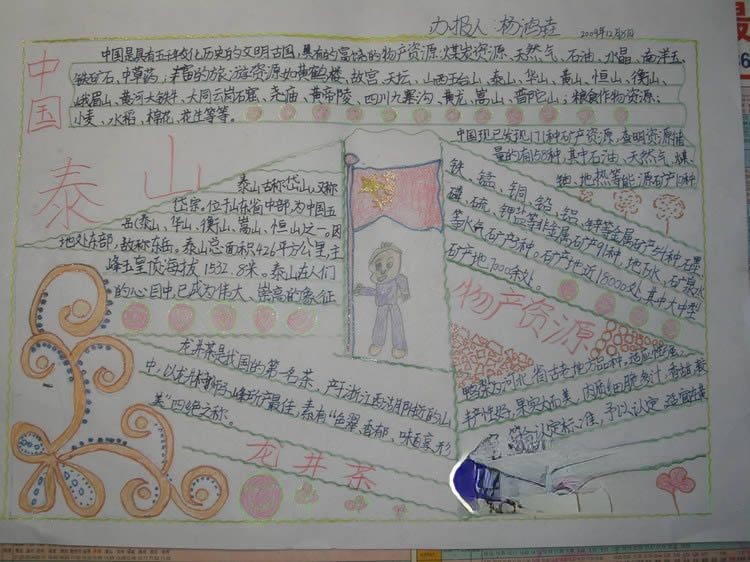 办报人：杨鸿 2009年12月5日
中国
中国是具有五千年文化历史的文明古国，具有的富饶的物产资源：煤炭资源、天然气、石油、水晶、南洋玉、
铁矿石、中草药；丰富的旅游资源如黄鹤楼、故宫、天坛、山西五台山、泰山、华山、黄山、恒山、衡山、
峨眉山、黄河大铁牛、大同云岗石窟、尧庙、黄帝陵、四川九寨沟、黄龙、嵩山、普陀山；粮食作物资源：
小麦、水稻、棉花、花生等等。
泰山
泰山古称岱山，又称
岱宗。位于山东省中部，为中国五
岳(泰山、华山、衡山、嵩山、恒山)之一。因
地处东部，故称东岳。泰山总面积426平方公里，主
峰玉皇顶海拔1532.8米。泰山在人们
的心目中，已成为伟大、崇高的象征
中国现已发现171种矿产资源，查明资源储
量的有158种，其中石油、天然气、煤、
铀、地热等能源矿产10种
铁、锰、铜、铅、铝、锌等金属矿产54种，石墨、
磷、硫、钾盐等非金属矿产91种，地下水、矿泉水
等水气矿产3种。矿产地近18000处，其中大中型
矿产地7000余处。
物产资源
龙井茶是我国的第一名茶，产于浙江西湖附近的山
中，以龙井狮峰所产最佳，素有“色翠、香郁、味
美”四绝之称。
龙井茶
鸭梨为河北省古老地方品种。适应性
丰产性好，果实大而美，肉质细脆多汁，香甜
认定标准，予以认定